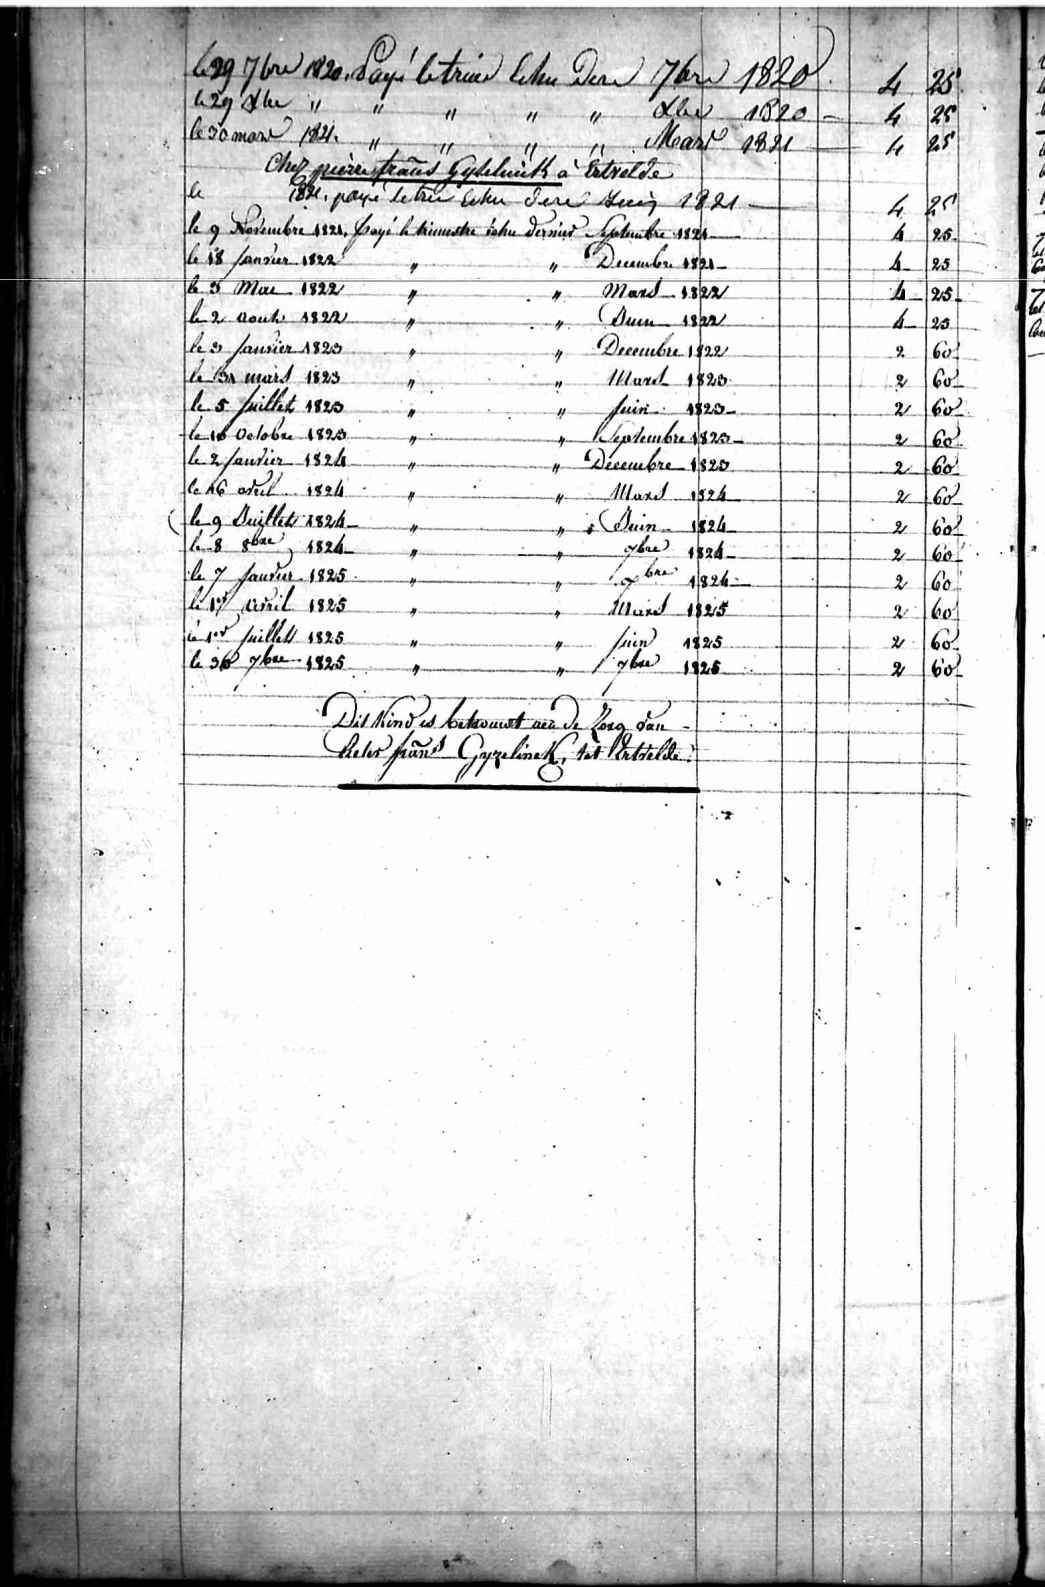 le 29 7bre 1820. Payé le trime echu Dere 7bre 1820 4 25
le 29 Xbre " " " " " Xbre 1820 - 4 25
le 30 mars 1821. " " " " Mars 1821 - 4 25
Chez pierre frañs à Ertvelde
le 1821. payé le tri echu dere Juin 1821 - 4 25
le 9 Novembre 1821. payé le trimestre échu dernier Septembre 1821 - 4 25
le 18 Janvier 1822 " " Decembre 1821 - 4 25
le 3 Mai 1822 " " Mars 1822 4 25
le 2 aout 1822 " " Juin 1822 4 25
le 3 Janvier 1823 " " Decembre 1822 2 60
le 31 mars 1823 " " Mars 1823 2 60
le 5 Juillet 1823 " " Juin 1823 - 2 60
le 10 Octobre 1823 " " Septembre 1823 - 2 60
le 2 Janvier 1824 " " Decembre 1823 2 60
le 16 avril 1824 " " Mars 1824 2 60
le 9 Juillet 1824 - " " Juin 1824 2 60
le 8 8bre 1824 " " 7bre 1824 - 2 60
le 7 Janvier 1825 " " bre 1824 - 2 60
le avril 1825 " " Mars 1825 2 60
le 1er Juillet 1825 " " Juin 1825 2 60
le 30 7bre 1825 " " 7bre 1825 2 60
Dit Kind is betrouwt aen De Zorg van
Pieter frans Gyzelinck, tot Ertvelde